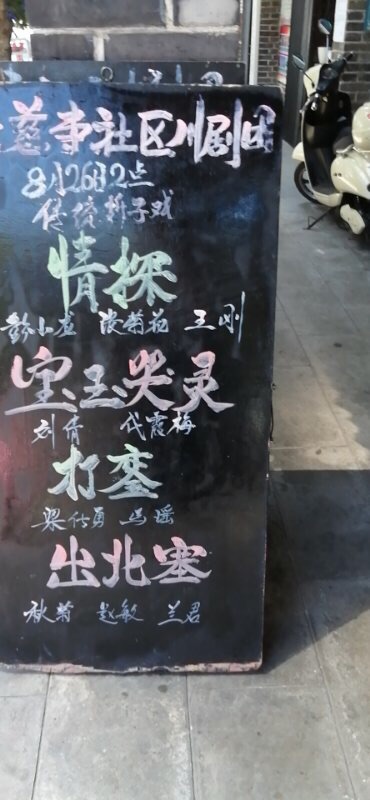 慈寺社区川剧团
8月26日2点
传统折子戏
情探
小龙 菊花 王刚
宝玉哭灵
刘倩 代霞梅
打銮
梁仕勇 马瑶
出北塞
秋菊 赵敏 兰君